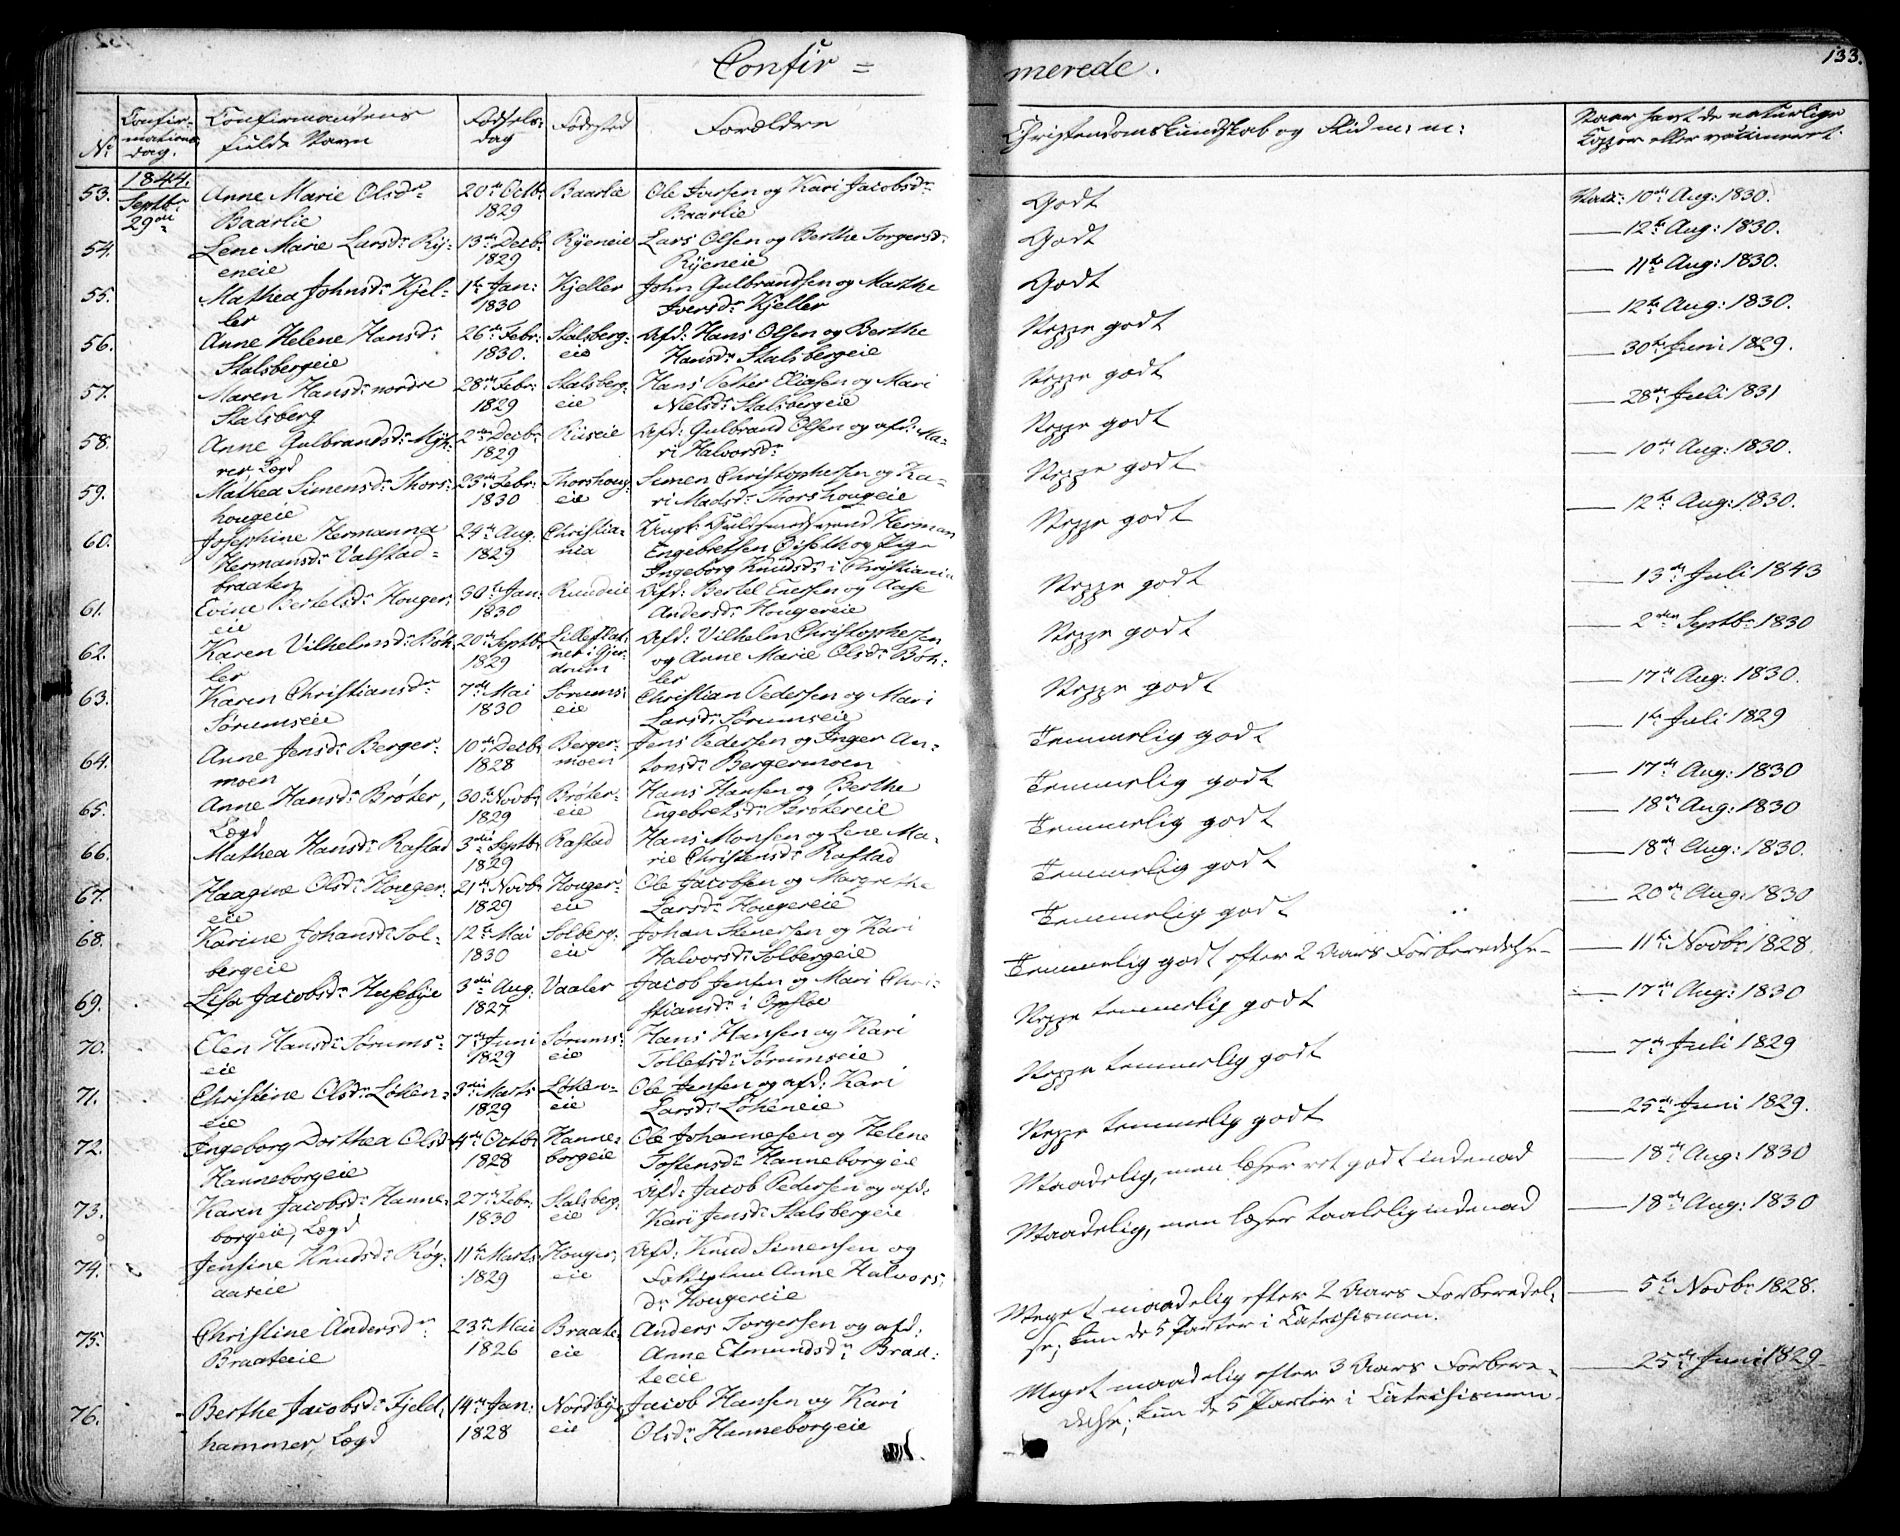 Confir=
merede.
133.
No
Confirmations dag.
Confirmandens fulde Navn
Fødsels dag
Fødested
Forældre
Christendomskundskab og Flid m: m:
Naar havt de naturlige Kopper eller vaccineret
1844.
Septbr 29de
53. Anne Marie Olsdr Baarlie
20de Octbr 1829
Baarlie
Ole Iversen og Kari Jacobsdr Baarlie
Godt
Vacc: 10de Aug: 1830.
54. Lene Marie Larsdr Ryeneie
13de Decbr 1829
Ryeneie
Lars Olsen og Berthe Torgersdr Ryeneie
Godt
12te Aug: 1830.
55. Mathea Johnsdr Kjeller
1te Jan: 1830
Kjeller
John Gulbrandsen og Marthe Iversdr Kjeller
Godt
11te Aug: 1830.
56. Anne Helene Hansdr Stalsbergeie
26de Febr: 1830.
Stalsbergeie
Afd: Hans Olsen og Berthe Hansdr Stalsbergeie
Neppe godt
12te Aug: 1830.
57. Maren Hansdr nordre Stalsberg
28de Febr: 1829
Stalsbergeie
Hans Petter Eliasen og Mari Nielsdr Stalsbergeie
Neppe godt
30te Juni 1829.
58. Anne Gulbrandsdr Myhrer Lægd
2den Decbr 1829
Riiseie
Afd: Gulbrand Olsen og afd: Mari Halvorsdr
Neppe godt
28de Juli 1831
59. Mathea Simensdr Thorshougeie
23de Febr: 1830
Thorshougeie
Simen Christophersen og Kari Madsdr Thorshougeie
Neppe godt
10de Aug: 1830.
60. Josephine Hermanna Hermansdr Valstadbraaten
24de Aug. 1829
Christiania
Ungk: Guldsmedsvend Herman Engebretsen Diseth og Pige Ingeborg Knudsdr i Christiania
Neppe godt
12te Aug: 1830.
61. Evine Bertelsdr Hougereie
30te Jan: 1830
Rundeie
Afd: Bertel Enersen og Aase Andersdr Hougereie
Neppe godt
13de Juli 1843
62. Karen Vilhelmsdr Bøhler
20de Septbr 1829
Lilleflatner i Gjerdrum
Afd: Vilhelm Christophersen og Anne Marie Olsdr Bøhler
Neppe godt
2den Septbr 1830
63. Karen Christiansdr Sørumseie
7de Mai 1830
Sørumseie
Christian Pedersen og Mari Larsdr Sørumseie
Neppe godt
17de Aug: 1830.
64. Anne Jensdr Bergermoen
10de Decbr 1828
Bergermoen
Jens Pedersen og Inger Antonsdr Bergermoen
Temmelig godt
1te Juli 1829
65. Anne Hansdr Brøter, Lægd
30te Novbr 1829
Brøtereie
Hans Hansen og Berthe Engebretsdr Brøtereie
Temmelig godt
17de Aug: 1830
66. Mathea Hansdr Rastad
3die Septbr 1829
Rastad
Hans Monsen og Lene Marie Christensdr Rastad
Temmelig godt
18de Aug: 1830
67. Haagine Olsdr Hougereie
21de Novbr 1829
Hougereie
Ole Jacobsen og Margrethe Larsdr Hougereie
Temmelig godt
18de Aug: 1830.
68. Karine Johansdr Solbergeie
12te Mai 1830
Solbergeie
Johan Stenersen og Kari Halvorsdr Solbergeie
Temmelig godt
20de Aug: 1830
69. Lisa Jacobsdr Huseby
3die Aug. 1827
Vaaler
Jacob Jensen og Mari Christiansdr i Opsloe
Temmelig godt efter 2 Aars Forberedelse
11te Novbr 1828.
70. Elen Hansdr Sørumseie
7de Juni 1829
Sørumseie
Hans Hansen og Kari Tollefsdr Sørumseie
Neppe temmelig godt
17de Aug: 1830
71. Christine Olsdr Løkeneie
3die Marts 1829
Løkeneie
Ole Jensen og afd: Kari Larsdr Løkeneie
Neppe temmelig godt
7de Juli 1829
72. Ingeborg Dorthea Olsd Hanneborgeie
4de Octbr 1828
Hanneborgeie
Ole Johannesen og Helene Jostensdr Hanneborgeie
Neppe temmelig godt
25de Juni 1829.
73. Karin Jacobsdr Hanneborgeie, Lægd
27de Febr: 1830
Stalsbergeie
Afd: Jacob Pedersen og afd: Kari Jensdr Stalsbergeie
Maadelig, men læser ret godt indenad
18de Aug: 1830
74. Jensine Knudsdr Røgaaseie
11te Marts 1829
Hougereie
Afd: Knud Simensen og Anne Halvorsdr Hougereie
Maadelig, men læser taalelig indenad
18de Aug: 1830
75. Christine Andersdr Braateeie
23de Mai 1826
Braateeie
Anders Torgersen og afd: Anne Edmundsdr Braateeie
Meget maadelig efter 2 Aars Forberedelse; kun de 5 Parter i Catechismen.
5te Novbr 1828.
76. Berthe Jacobsdr Fjeldhammer, Lægd
14de Jan: 1828
Nordbyeie
Jacob Hansen og Kari Olsdr Hanneborgeie
Meget maadelig efter 3 Aars Forberedelse; kun de 5 Parter i Catechismen.
25de Juni 1829